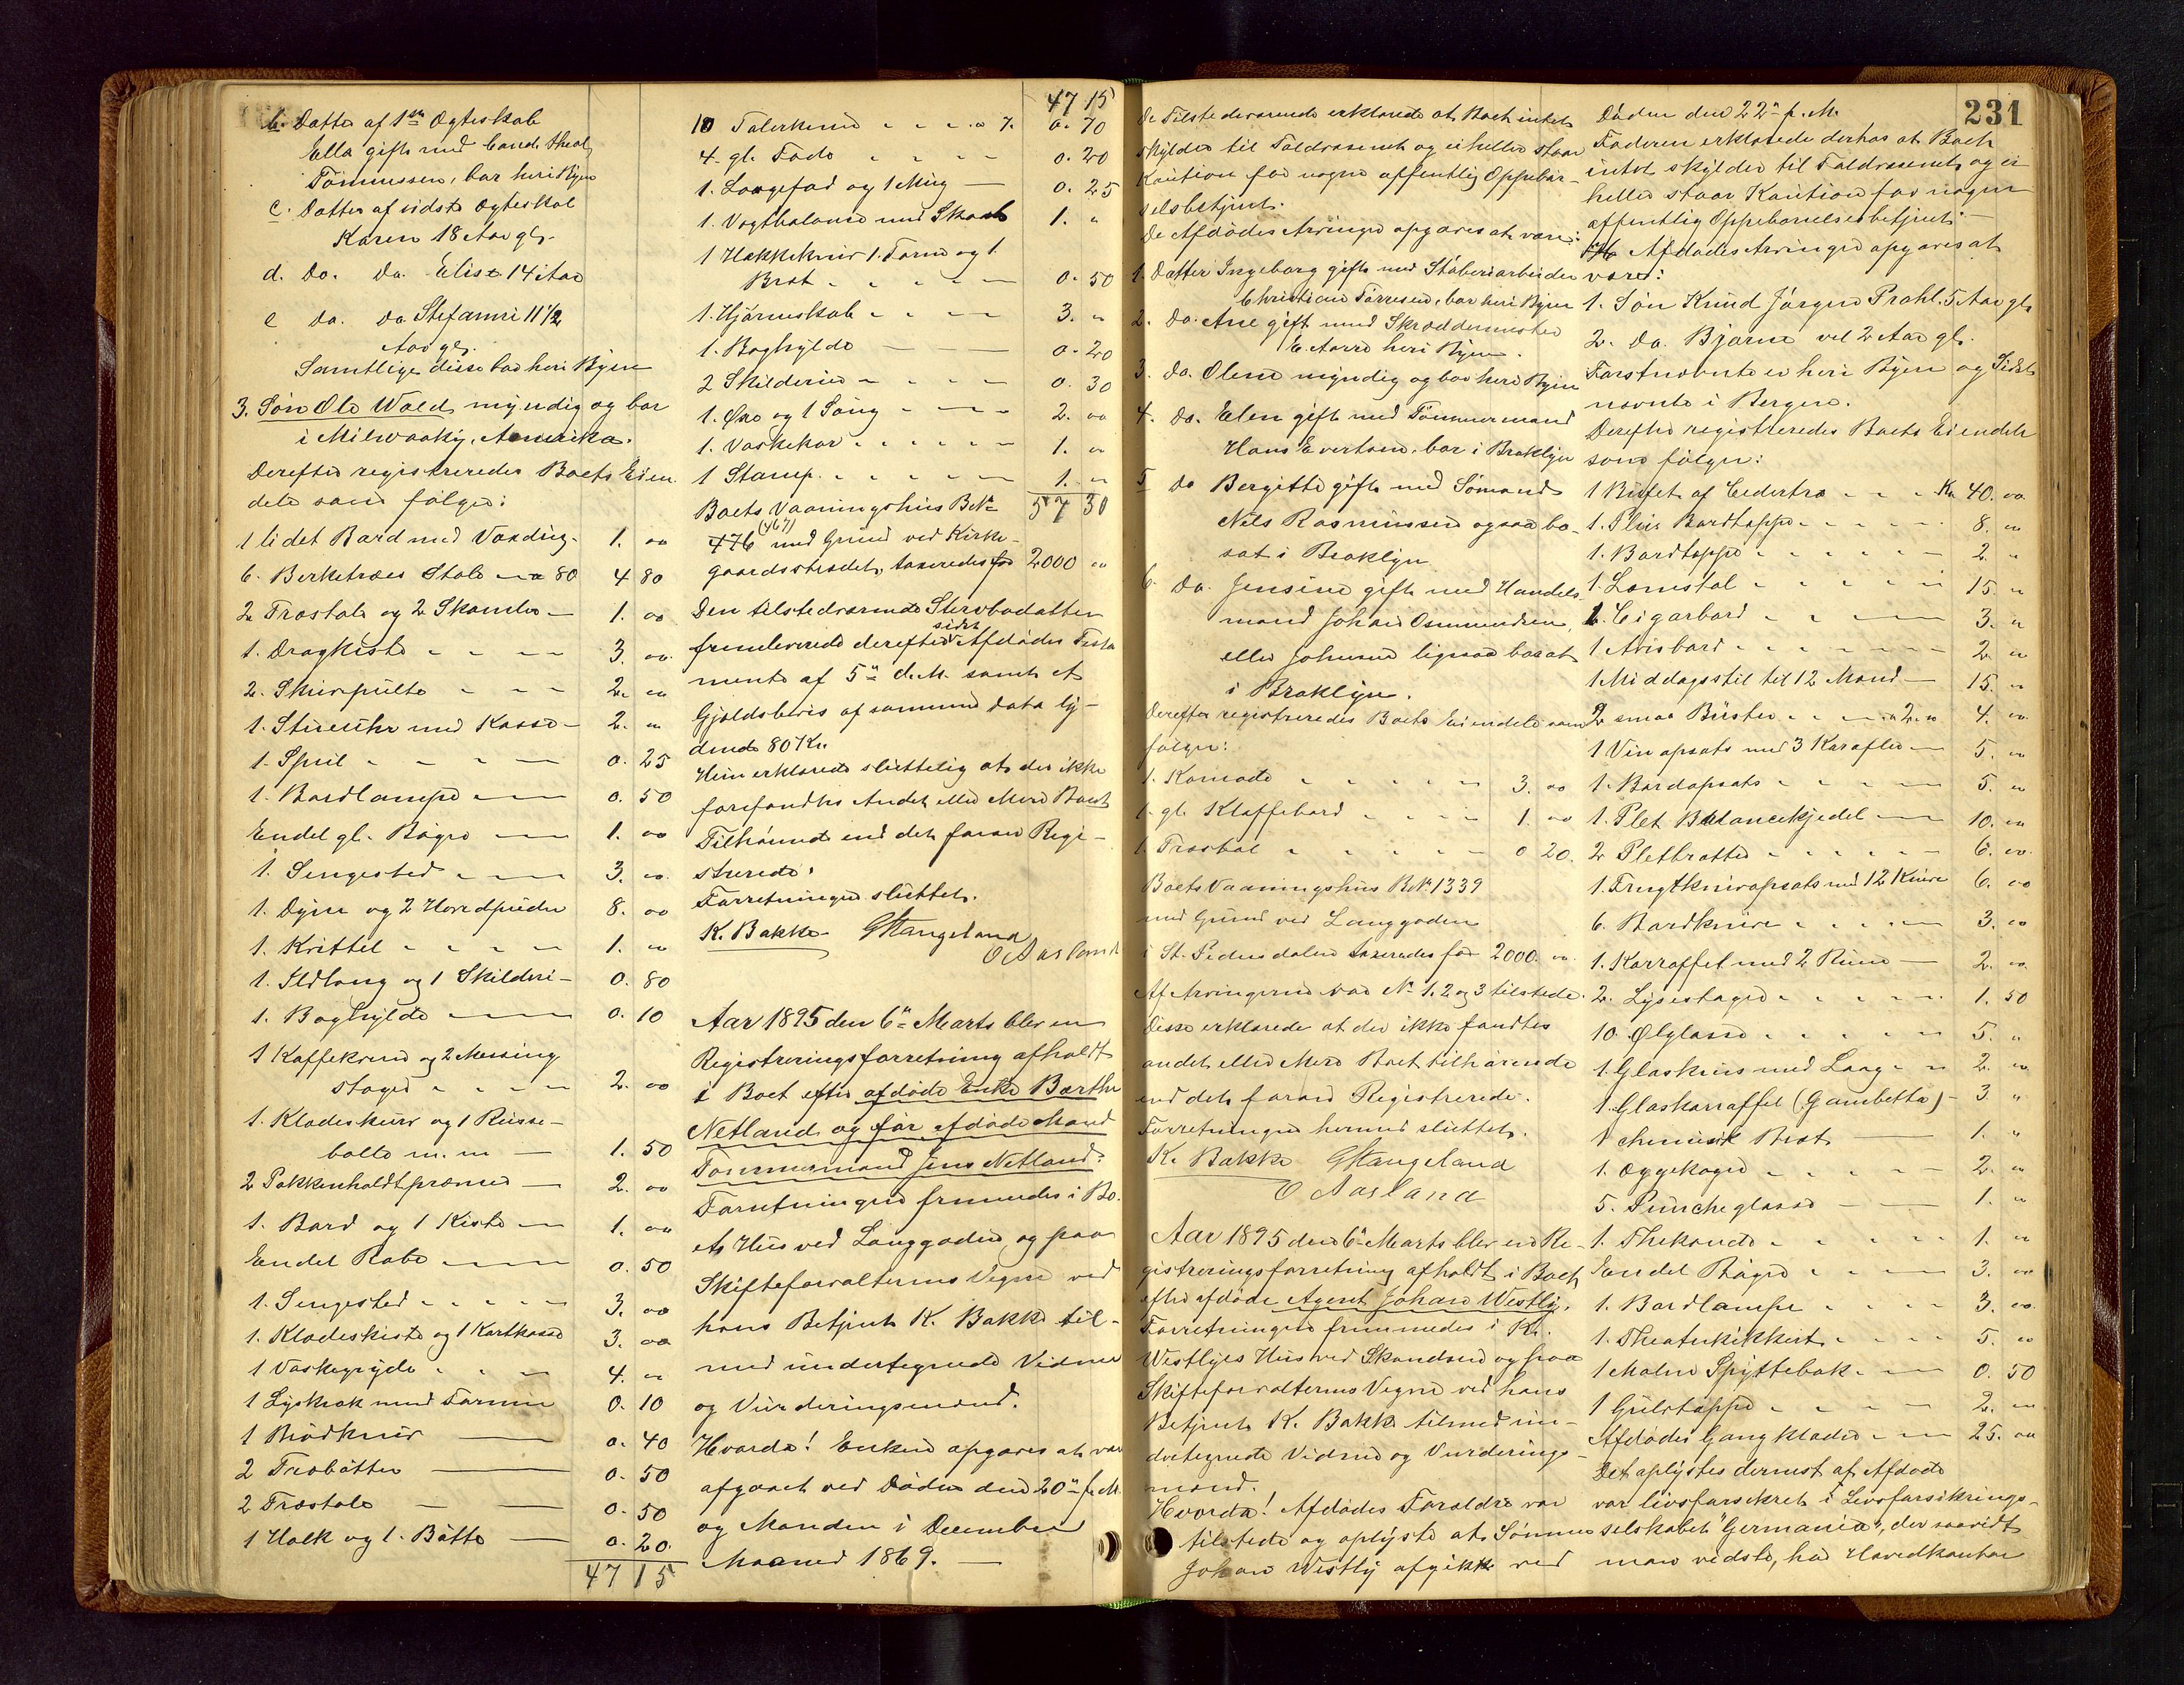 b. Datter af 1ste Ægteskab
Ella gift med Cand. theol.
Tönnessen, bor heri Byen
c. Datter af sidste Ægteskab
Karen 18 Aar gl.
d. Do. Do. Elise 14 Aar
e do. do Stefanie 11 1/2
Aar gl.
Samtlige disse bor heri Byen
3. Sön Ole Wold, myndig og bor
i Milwaaky, Amerika.
Derefter registreredes Boets Eien
dele som følger:
1 lidet Bord med Voxdug. 1. 00
6. Berketræes Stole a 80 4 80
2 Træstole og 2 Skamler 1. 00
1. Dragkiste 3. 00
2. Skrivepulte 2. 00
1. Stueuhr med Kasse 2. 00
1. Speil 0. 25
1. Bordlampe 0. 50
Endel gl. Bøger 1. 00
1. Sengested 3. 00
1. Dyne og 2 Hovedpuder 8. 00
1. Krittel 1. 00
1. Ildtang og 1 Skilderi 0. 80
1. Boghylde 0. 10
1 Kaffekværn og 2 Messing
stager 2. 00
1. Klædeskurv og 1 Russe-
balle m. m 1. 50
2 Pakkenholdtprænner 2. 00
1. Bord og 1 Kiste 1. 00
Endel Rabe 0. 50
1. Sengested 3. 00
1. Klædeskiste og 1 Kortkasse 3. 00
1 Vaskegryde 4. 00
1 Lyskrok med Formen 0. 10
1 Brödkniv 0. 40
2 Træbötter 0. 50
2 Træstole 0. 50
1 Holk og 1. Bötte 0. 20
47 15
47 15
10 Talerkener a 7. 0. 70
4. gl. Fade 0. 20
1. Laagefad og 1 Mug 0. 25
1. Vægtbalance med Skaal 1. "
1 Hakkekniv 1. Form og 1.
Bræt 0. 50
1. Hjörneskab 3. "
1. Boghylde 0. 20
2 Skilderier 0. 30
1. Øxe og 1 Saug 2. 00
1. Vaskekar 1. "
1 Stamp 1. "
57 30
Boets Vaaningshus B No
(467)
476 med Grund ved Kirke-
gaardsstrædet, taxeredes for 2000 "
Den tilstedværende Stervbodatter
sidst
fremleverede derefter Afdødes Testa
mente af 5te d.M. samt et
Gjældsbevis af samme Dato ly-
dende 80 Kr.
Hun erklærede sluttelig at der ikke
forefandtes Andet eller Mere Boet
Tilhörende end det foran Regi-
strerede.
Forretningen sluttet.
K. Bakke GStangeland
O Aasland
Aar 1895 den 6te Marts blev en
Registreringsforretning afholdt
i Boet efter afdøde Enke Barthe
Netland og før afdøde Mand
Tømmermand Jens Netland.
Forretningen fremmedes i Bo-
ets Hus ved Langgaden og paa
Skifteforvalterens Vegne ved
hans Betjent K. Bakke til-
med undertegnede Vidner
og Vurderingsmænd.
Hvorda! Enken opgaves at vær
afgaaet ved Døden den 20de f.M.
og Manden i December
Maaned 1869.
231
De Tilstedeværende erklærede at Boet intet
skylder til Toldvæsenet og ei heller staar
Kaution for nogen offentlig Oppebør-
selsbetjent.
De Afdødes Arvinger opgaves at være:
1. Datter Ingeborg gift med Støberiarbeider
Christian Tørresen, bor heri Byen
2. do. Ane gift med Skræddermester
E. Aarre heri Byen.
3. do. Olene myndig og bor heri Byen
4. do. Elen gift med Tømmermand
Hans Evertsen, bor i Broklyn
5 do Bergitte gift med Sømand
Nils Rasmussen ogsaa bo-
sat i Broklyn
6. do. Jensine gift med Handels-
mand Johan Osmundsen,
eller Johnsen ligesaa bosat
i Broklyn.
Derefter registreredes Boets Eiendele som
følger:
1. Komode 3. 00
1. gl. Klaffebord 1. 00
1. Træstol 0 20.
Boets Vaaningshus B No 1339
med Grund ved Langgaden
i St. Pedersdalen taxeredes for 2000. 00
Af Arvingerne var No 1. 2 og 3 tilstede.
Disse erklærede at der ikke fandtes
andet eller Mere Boet tilhørende
end det foran Registrerede.
Forretningen hermed sluttet.
K. Bakke GStangeland
O Aasland
Aar 1895 den 6te Marts blev en Re-
gistreringsforretning afholdt i Boet
efter afdøde Agent Johan Westly.
Forretningen fremmedes i K.
Westlyes Hus ved Skandsen og paa
Skifteforvalterens Vegne ved hans
Betjent K. Bakke tilmed un-
dertegnede Vidner og Vurderings-
mænd.
Hvorda! Afdødes Forældre var
tilstede og oplyste at Sønnen
Johan Westly afgikk ved
Døden den 22de f.M.
Faderen erklærede derhos at Boet
intet skylder til Toldvæsenet og ei
heller staar Kaution for nogen
offentlig Oppebørselsbetjent.
Afdødes Arvinger opgaves at
være:
1. Søn Knud Jørgen Prahl. 5 Aar gl.
2. do. Bjarne vel 2 Aar gl.
Førstnævnte er heri Byen og Sidst
nævnte i Bergen.
Derefter registreredes Boets Eiendele
som følger:
1 Buffet af Cedertræ Kr 40. 00
1. Plüs Bordtæppe 8. 00
1. Bordtæppe 2. "
1. Lænestol 15. "
1. Cigarbord 3. "
1 Avisbord 2. 00
1 Middagsstel til 12 Mand 15. "
2 smaa Büster a 2. " 4. 00
1 Vinopsats med 3 Karafler 5. 00
1. Bordopsats 5. 00
1. Plet Balancekjedel 10. 00
2 Pletbrætter 6. 00
1. Frugtknivopsats med 12 Knive 6. 00
6. Bordknive 3. 00
1. Karraffel med 2 Rüme 2. 00
2. Lysestager 1. 50
10. Ølglasse 5. "
1. Glaskrus med Laag 2. 00
1. Glaskarraffel (Gambetta) 3. "
1 chinesisk Bræt 1. "
1. Æggekoger 2. 00
5. Puncheglasse 1. "
1. Thekande 1. "
Endel Bøger 3. 00
1. Bordlampe 3. 00
1. Theaterkikkert 5. 00
1 Malm Spyttebak 0. 50
1 Gulvtæppe 2. 00
Afdødes Gangklæder 25. 00
Det oplystes dernæst at Afdøde
var livsforsikret i Livsforsikrings-
selskabet "Germania", der saavidt
man vidste, har Hovedkontor